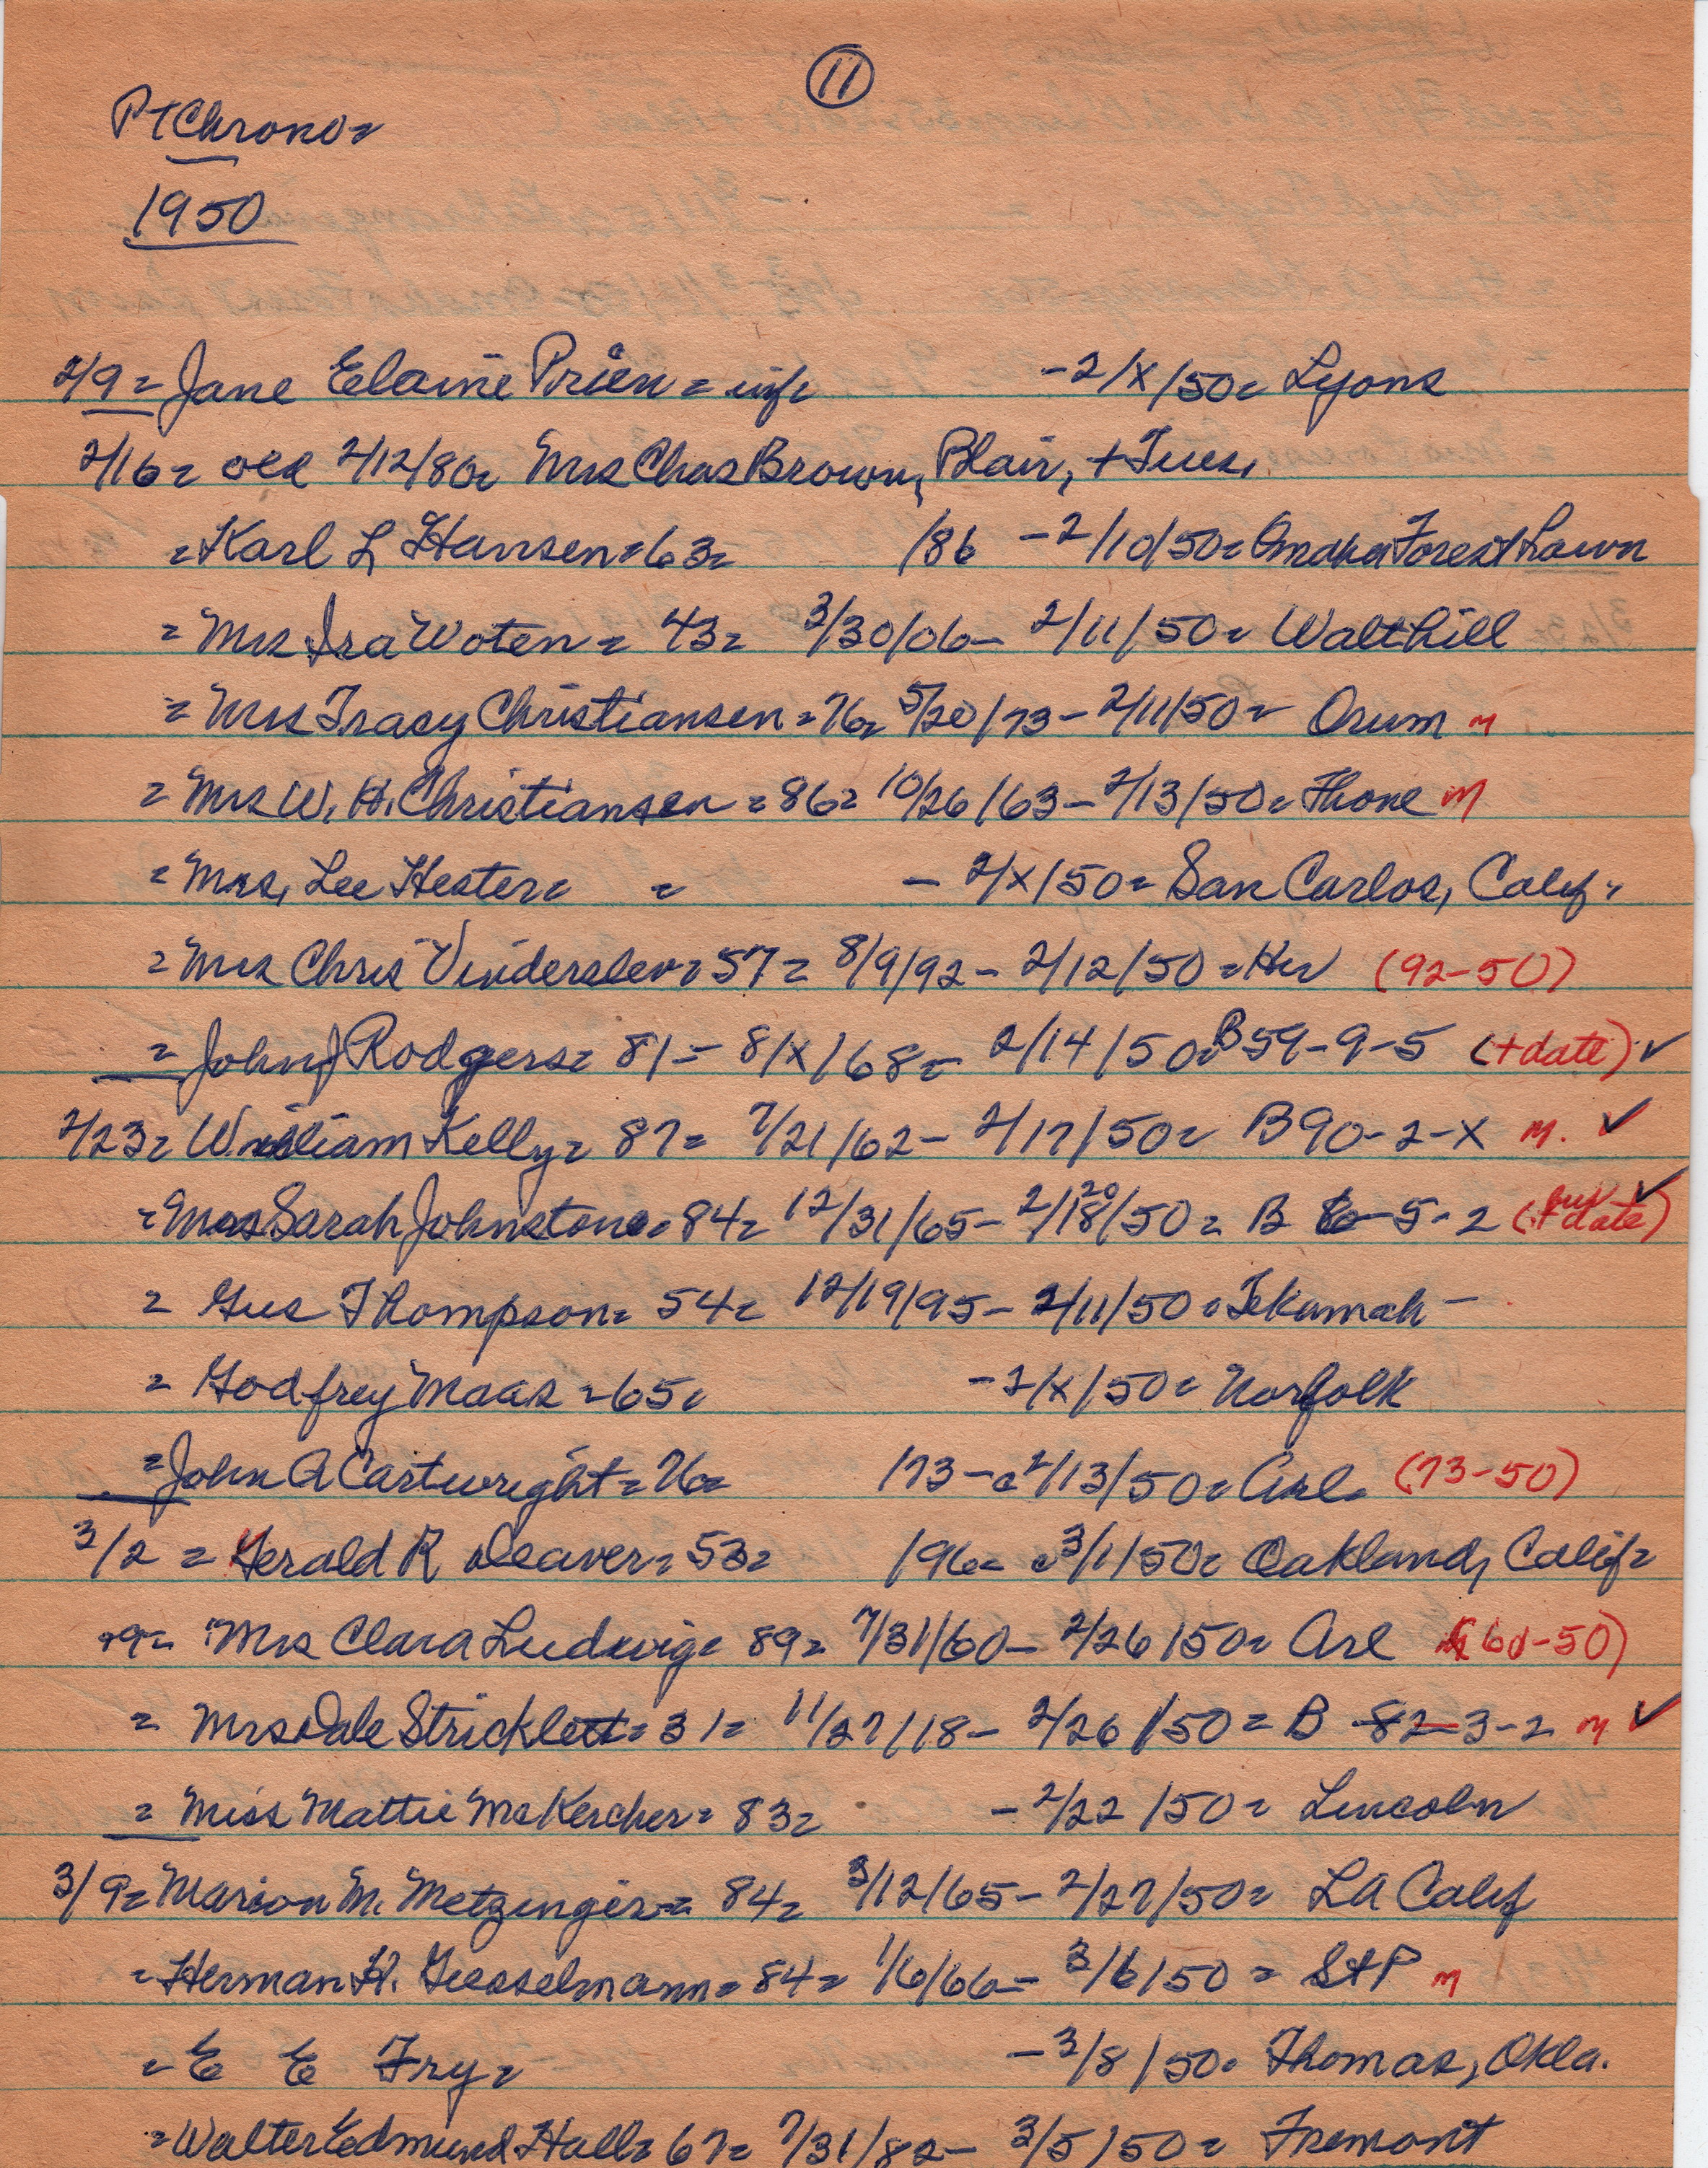 11
P+Chrono=
1950
2/9= Jane Elaine Prien= inf= -2/x/50= Lyons
2/16= old 2/12/80= Mrs Chas Brown, Blair, + Tues.
=Karl L Hansen=63= /86 -2/10/50= Omaha Forest Lawn
=Mrs Ira Woten= 43= 3/30/06- 2/11/50= Walthill
=Mrs Tracy Christiansen=76= 5/20/73- 2/11/50= Orum m
=Mrs W. H. Christiansen=86= 10/26/63- 2/13/50= Thone m
=Mrs. Lee Hester= = - 2/x/50= San Carlos, Calif=
=Mrs Chris Vinderslev=57= 8/9/92- 2/12/50=Her (92-50)
=John J Rodgers= 81= 8/x/68= 2/14/50= B 59-9-5 (+date) ✓
2/23= William Kelly= 87= 7/21/62- 2/17/50= B 90-2-X m. ✓
=Mrs Sarah Johnston= 84= 12/31/65- 2/18/50= 20 B 6-5-2 (+ date) ✓
= Gus Thompson= 54= 12/19/95- 2/11/50=Tekamah-
= Godfrey Maas =65= -2/x/50= Norfolk
=John A Cartwright=76= /73- 2/13/50= Arl= (73-50)
3/2 = Gerald R Deaver=53= /96- 3/1/50= Oakland, Calif=
+9= Mrs Clara Ludwig= 89= 7/31/60- 2/26/50= Arl (60-50)
= Mrs Dale Stricklett=31= 11/27/18- 2/26/50= B 82-3-2 m ✓
= Miss Mattie McKercher= 83= -2/22/50= Lincoln
3/9= Marion M. Metzinger= 84= 3/12/65- 2/27/50= LA Calif
=Herman H. Giesselmann=84= 1/6/66- 3/6/50= S+P m
=E E Fry= -3/8/50= Thomas, Okla.
=Walter Edmund Hall=67= 7/31/82- 3/5/50= Fremont